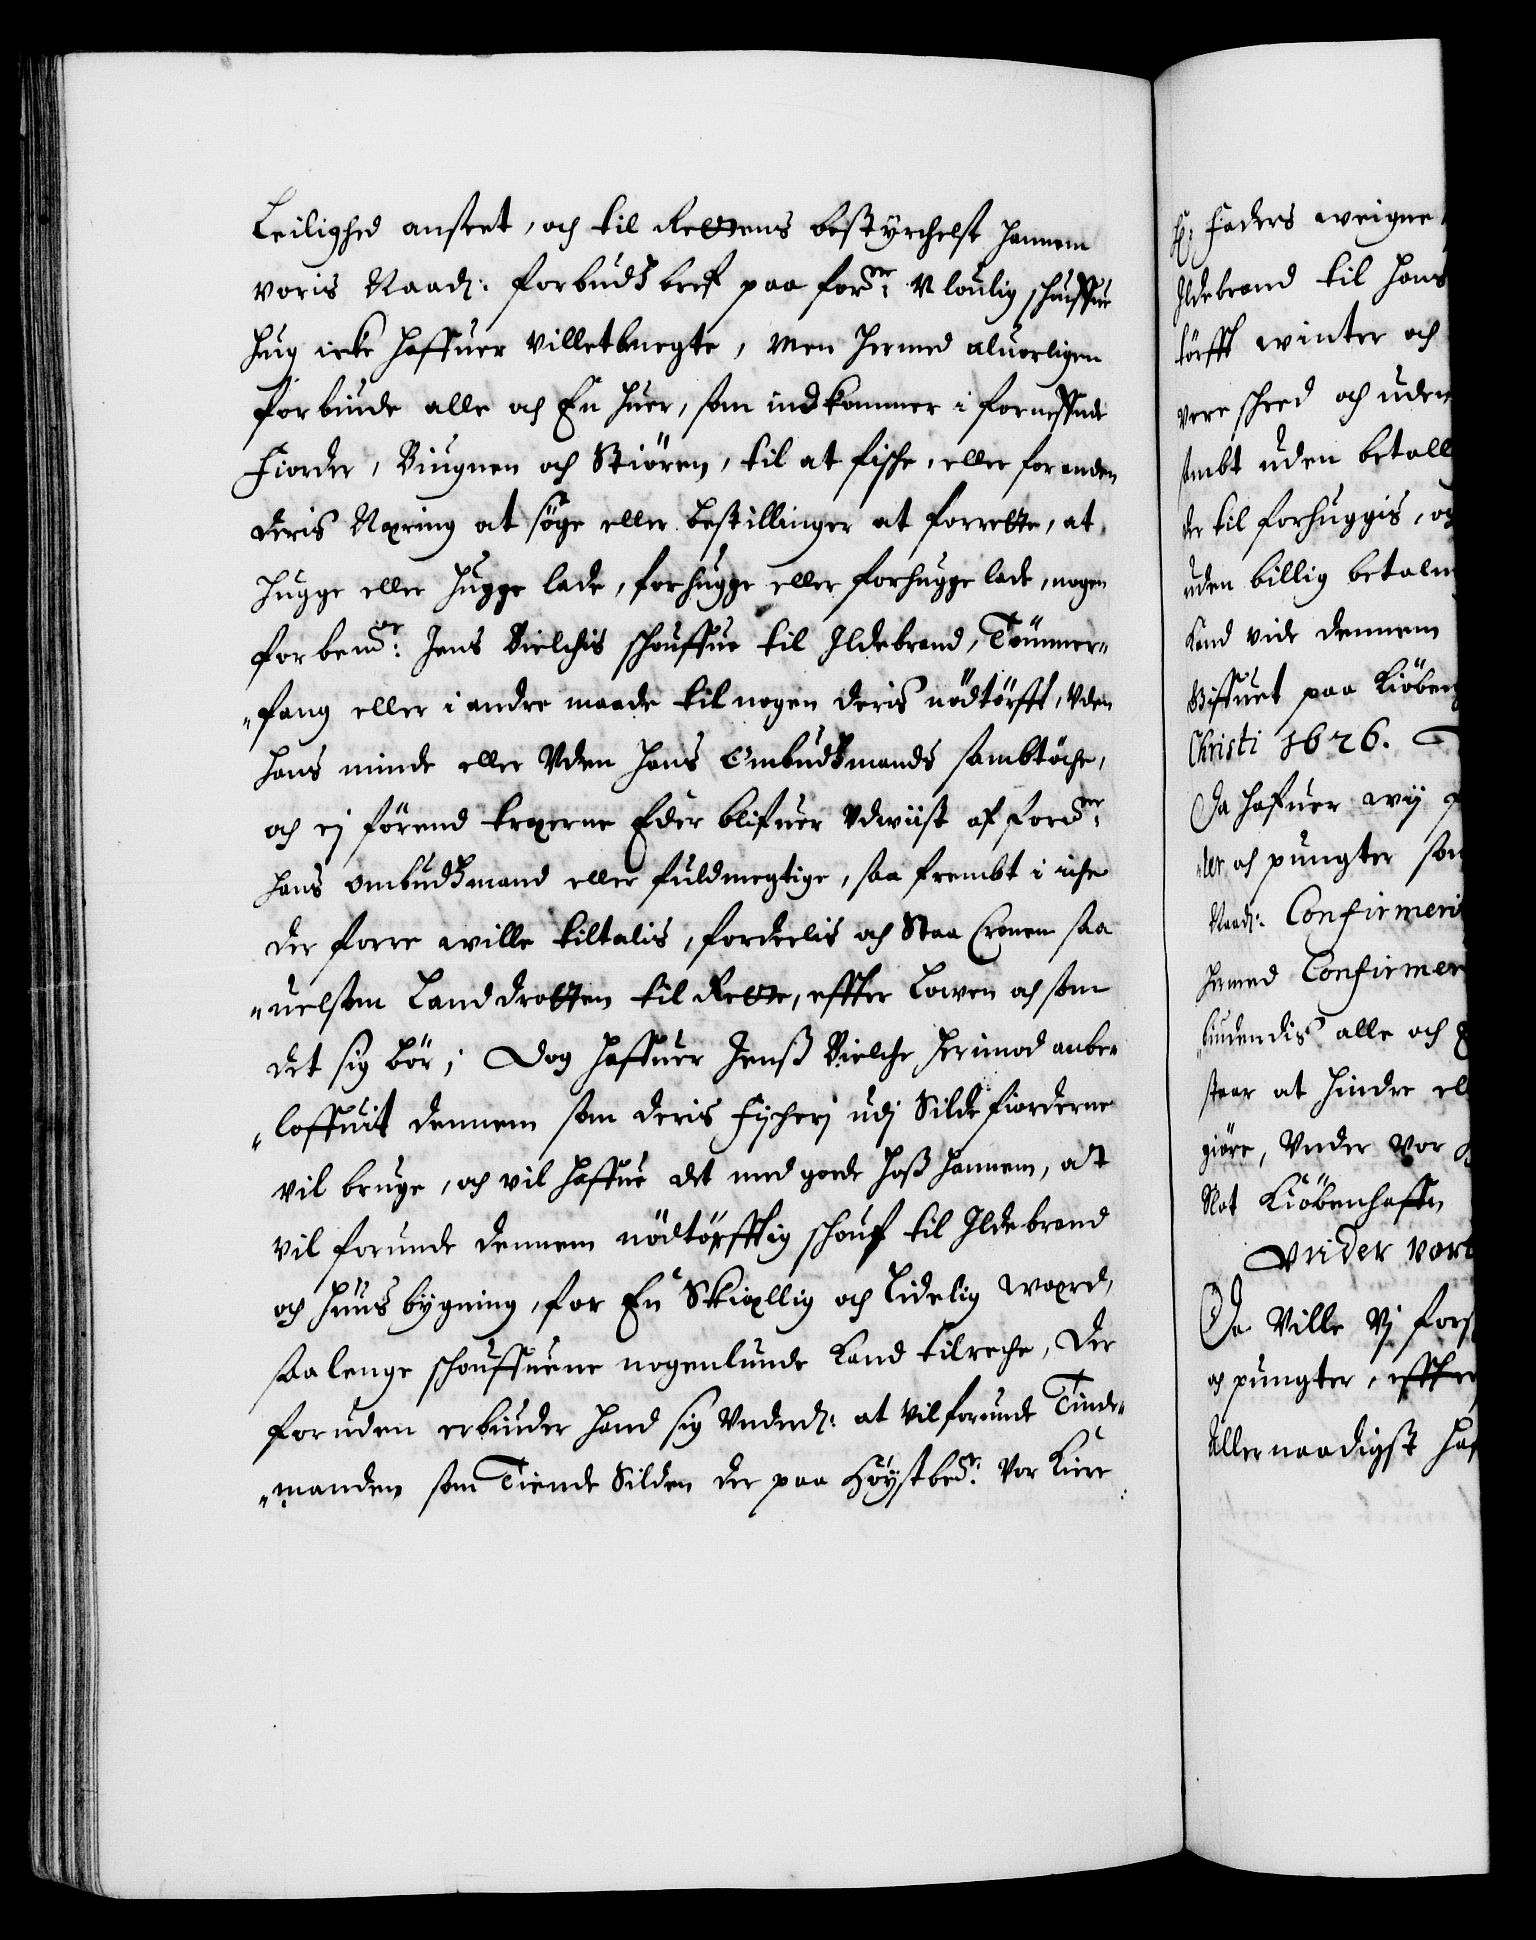 Leilighed anseet, och til Rettens bestyrchelse hannem
voris Naad: forbudz bref paa ford:ne Vloulig schouffue
hug icke haffuer villet benegte, men hermed aluorligen
forbiude alle och En huer, som indkommer i fornessnde
Fiorder, Biugnen och Stiören, til at fische, eller for anden
deris Næring at söge eller bestillinger at forrette, at
hugge eller hugge lade, forhugge eller forhugge lade, nogen
forbend:ne Jens Bielchis schouffue til Ildebrand, Tömmer„
„fang eller i andre maade til nogen deris nödtörfft, Vden
hans minde eller Vden hans Ombudzmands sambtöche,
och ej förend træerne Eder blifuer Vdwiist af ford:ne
hans ombudzmand eller fuldmegtige, saa frembt i iche
der forre wille tiltalis, fordeelis och Staa Cronen saa
„uelsom Landdrotten til Rette, effter Lowen och som
det sig bör; Dog haffuer Jenß Bielche herimod anbe„
„loffuit dennem som deris Fischerj udj Silde fiorderne
vil bruge, och vil haffue det med goede hoß hannem, at
vil forunde dennem nödtörfftig schouf til Ildebrand
och huus bygning, for En Skiællig och Lidelig woxrd,
saa lenge schouffuene nogenlunde kand tilreche, Der
foruden erbiuder hand sig Vnderd: at vil forunde Tiende„
„manden som Tiende Silden der paa Höystbed:e Vor Kiere
H: Faders weigne
Ildebrand til hans
törfft winter och
were scheed och uden
sambt uden betall
der til forhuggis, og
uden billig betaln
kand vide dennem
Giffuet paa Kiöben
Christi 1626.
Da hafuer wij
der och pungter som
Naad: Confirmeri
hermed Confirmer
biudendis alle och
staar at hindre ell
giöre, Vnder vor
Slot Kiöbenhaffn
Vnder vort
Da Ville Vj fors
och pungter, effter
Allernaadigst haf